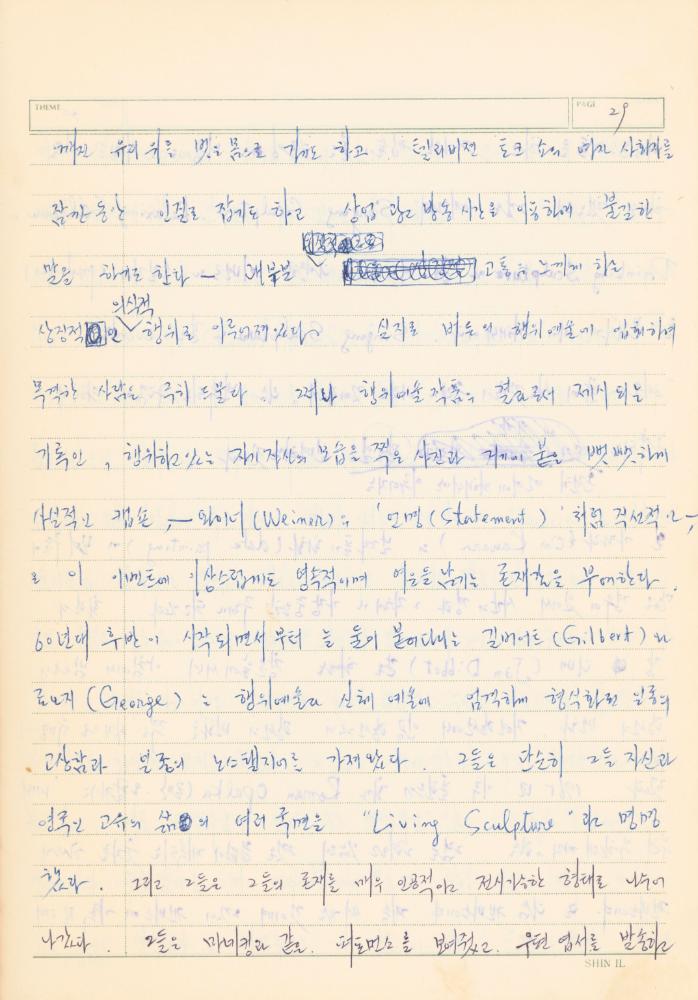 THEME
PAGE 29
깨진 유리 위를 벗은 몸으로 기기도 하고. 텔리비젼 토크 쇼의 여자 사회자를
잠깐 동안 인질로 잡기도 하고 상업 광고 방송 시간을 이용하여 불길한
말을 하기도 한다 — 대부분 고통을 느끼게 하는
의식적
상징적인 행위로 이루어져 있다. 실지로 버든의 행위예술에 입회하여
목격한 사람은 극히 드물다. 그러나 행위예술 작품의 결과로서 제시되는
기록인, 행위하고 있는 자기 자신의 모습을 찍은 사진과 거기에 붙은 뻣뻣하게
사실적인 캡숀, — 와이너(Weiner)의 '언명(Statement)'처럼 직선적인 —
은 이 이벤트에 이상스럽게도 영속적이며 여운을 남기는 존재감을 부여한다.
60년대 후반이 시작되면서부터 늘 둘이 붙어다니는 길버어트(Gilbert)와
죠오지(George)는 행위예술과 신체 예술에 엄격하게 형식화된 일종의
고상함과 일종의 노스탤지어를 가져왔다. 그들은 단순히 그들 자신과
영국인 고유의 삶의 여러 국면을 "Living Sculpture"라고 명명
했다. 그리고 그들은 그들의 존재를 매우 인공적이고 전시가능한 형태로 나누어
나갔다. 그들은 마네킹과 같은. 퍼포먼스를 보여줬고. 우편 엽서를 발송하고
SHIN IL